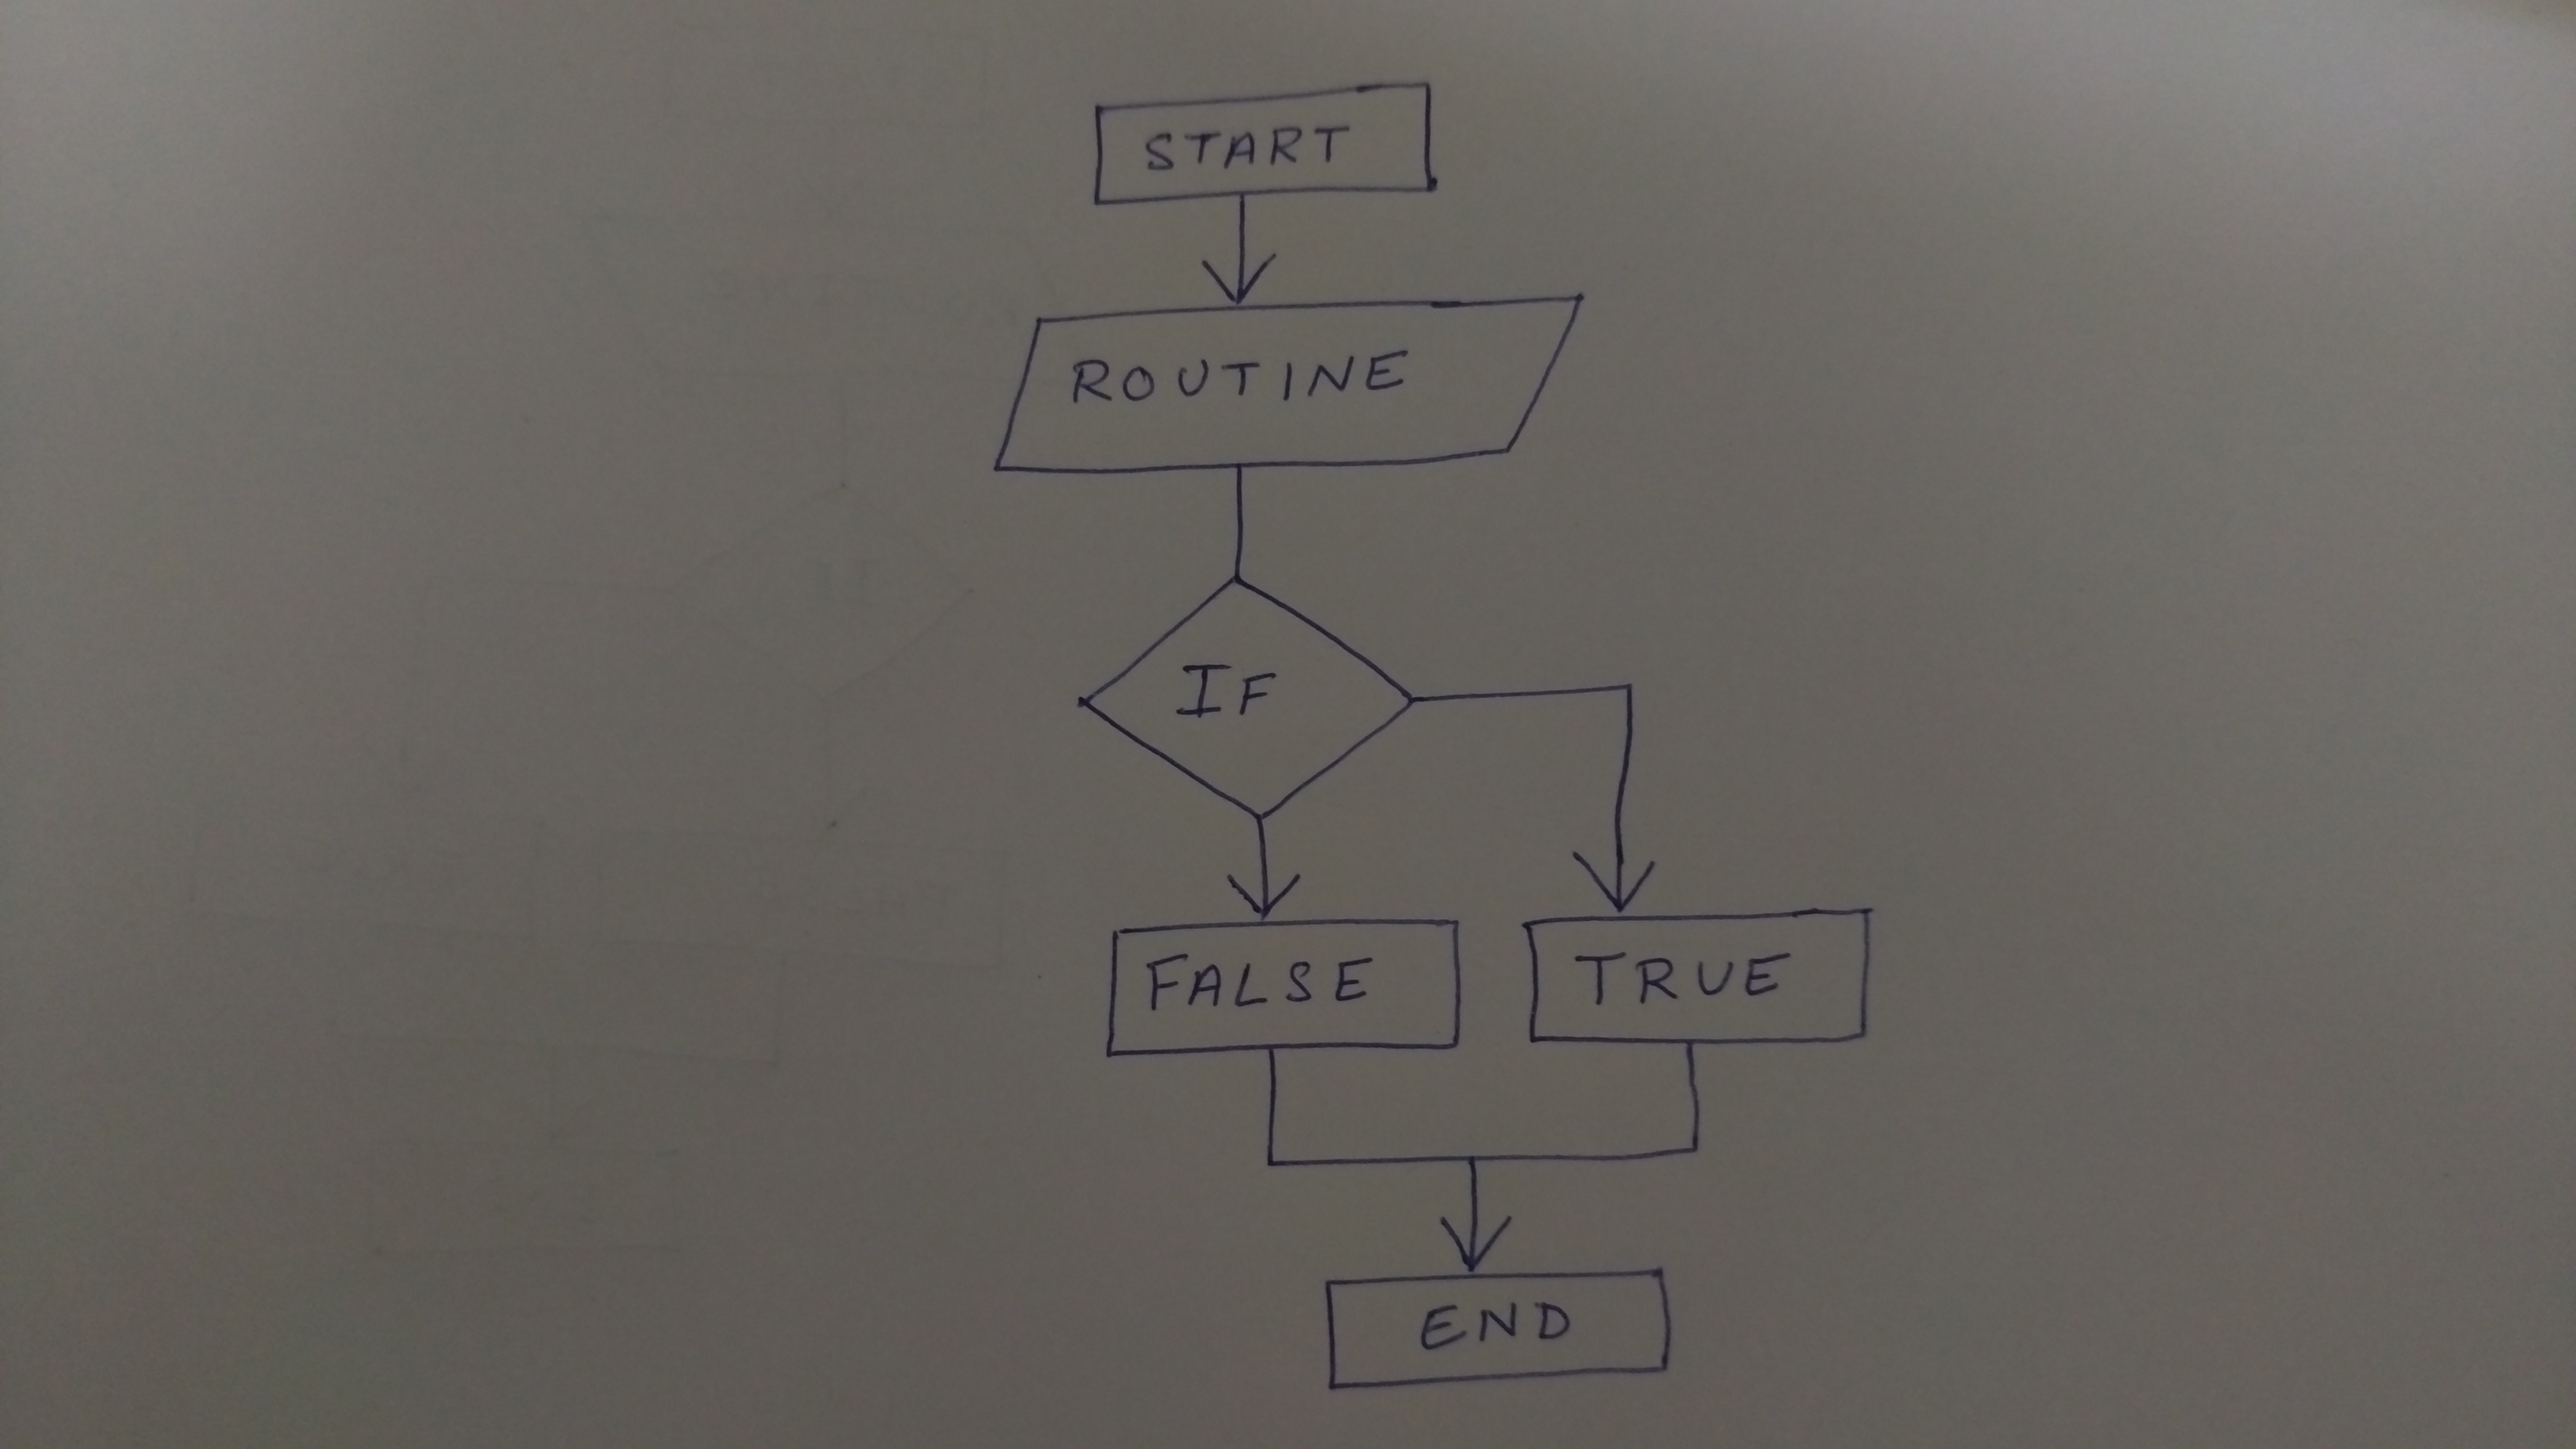 START
ROUTINE
IF
FALSE
TRUE
END